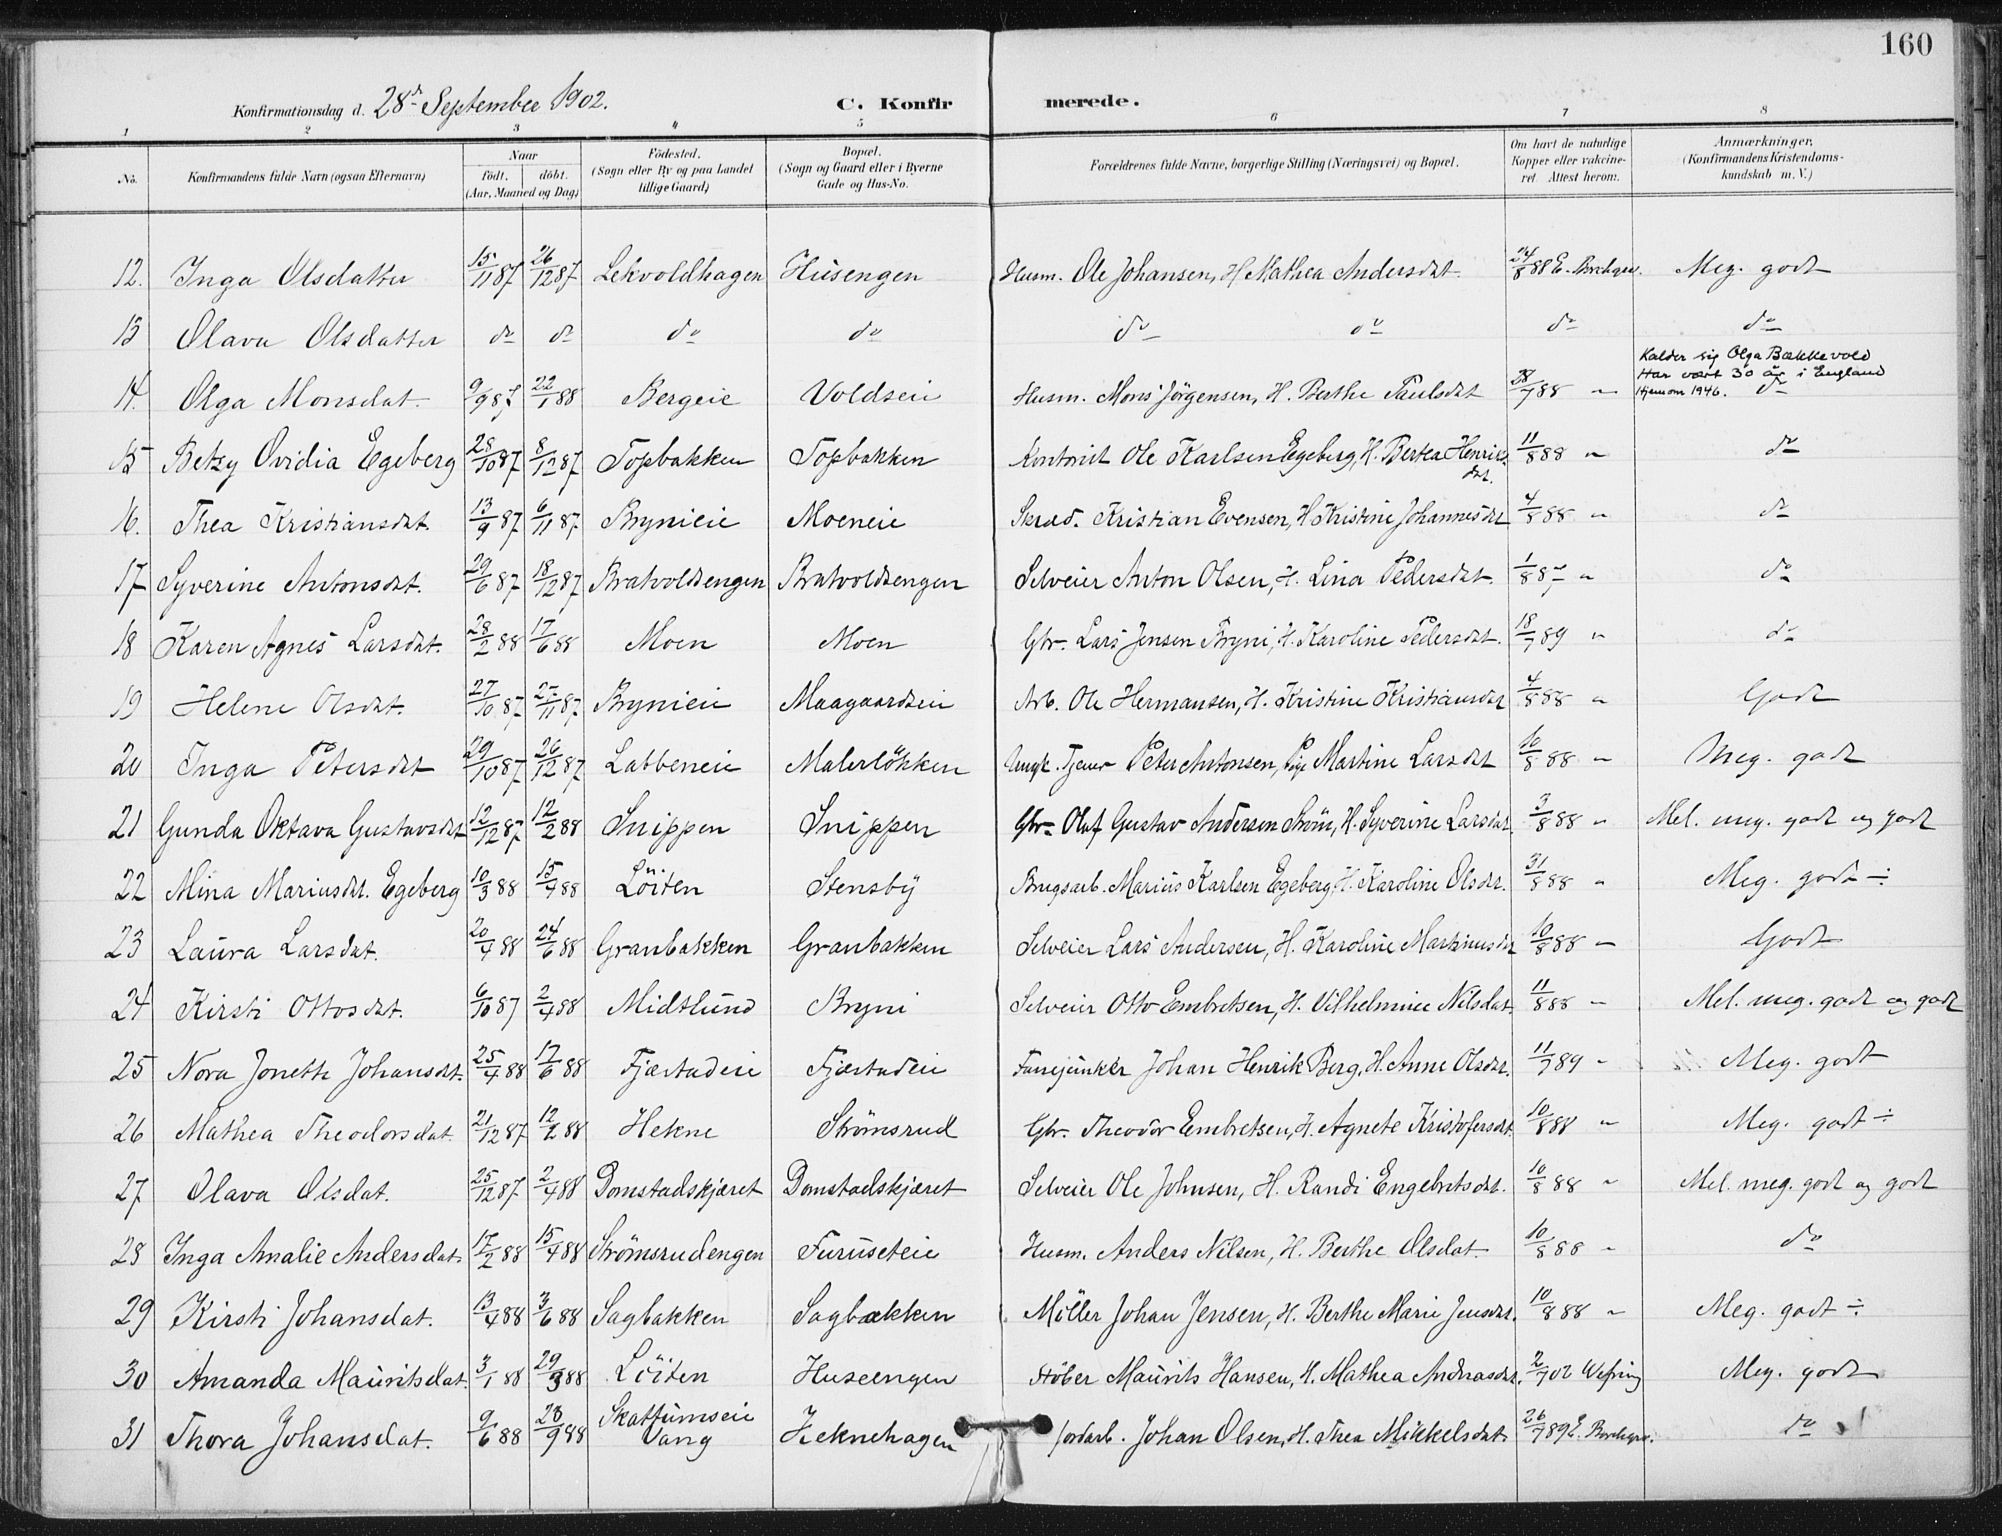 160
Konfirmationsdag d. 28de September 1902. C. Konfirmerede.
1 2 3 4 5 6 7 8
No. Konfirmandens fulde Navn (ogsaa Efternavn) Naar födt. döbt. (Aar, Maaned og Dag) Födested. (Sogn eller By og paa Landet tillige Gaard) Bopæl. (Sogn og Gaard eller i Byerne Gade og Hus-No. Forældrenes fulde Navne, borgerlige Stilling (Næringsvei) og Bopæl. Om havt de naturlige Kopper eller vakcineret. Attest herom. Anmærkninger. (Konfirmandens Kristendomskundskab m. V.)
12. Inga Olsdatter 15/11 87 26/12 87 Lekvoldhagen Husengen Husm. Ole Johansen, H. Mathea Andersdat. 24/8 88 E. Borchgrev. Meg. godt
13 Olava Olsdatter do do do do do do do do
14. Olga Monsdat. 9/9 87 22/1 88 Bergeie Voldseie Husm. Mons Jörgensen, H. Berthe Paulsdat 28/7 88 " Kalder sig Olga Bækkevold Har vært 30 år i England Hjem om 1946. do
15 Betzy Ovidia Egeberg 28/10 87 8/12 87 Topbakken Topbakken Kontorist Ole Karlsen Egeberg, H. Bertea Henriksdat. 11/8 88 " do
16. Thea Kristiansdat. 13/9 87 6/11 87 Brynieie Moeneie Skræd. Kristian Evensen, H. Kristine Johannesdat 4/8 88 " do
17 Syverine Antonsdat. 29/6 87 18/12 87 Bratvoldsengen Bratvoldsengen Selveier Anton Olsen, H. Lina Pedersdat. 1/8 87 " do
18 Karen Agnes Larsdat. 28/2 88 17/6 88 Moen Moen Gbr. Lars Jensen Bryni, H. Karoline Pedersdat. 18/7 89 " do
19 Helene Olsdat. 27/10 87 27/11 87 Brynieie Maagaardseie Arb. Ole Hermansen, H. Kristine Kristiansdat 4/8 88 " Godt
20 Inga Petersdat 29/10 87 26/12 87 Labbeneie Malerlökken Ungk. Tjener Peter Antonsen, Pige Martine Larsdat 10/8 88 " Meg. godt
21 Gunda Oktava Gustavsdat 12/12 87 12/2 88 Snippen Snippen Gbr. Olaf Gustav Andersen Ström, H. Syverine Larsdat. 3/8 88 " Mel. meg. godt og godt
22 Mina Mariusdat. Egeberg 10/3 88 15/4 88 Löiten Stensby Brugsarb. Marius Karlsen Egeberg, H. Karoline Olsdat. 31/8 88 " Meg. godt ÷
23 Laura Larsdat. 20/4 88 24/6 88 Granbakken Granbakken Selveier Lars Andersen, H. Karoline Martinusdat 10/8 88 " Godt
24 Kirsti Ottosdat. 6/10 87 2/4 88 Midtlund Bryni Selveier Otto Embretsen, H. Vilhelmine Nilsdat. 11/8 88 " Mel. meg. godt og godt
25 Nora Jonette Johansdat. 25/4 88 17/6 88 Fjæstadeie Fjæstadeie Fanejunker Johan Henrik Berg, H. Anne Olsdat. 11/7 89 " Meg. godt
26 Mathea Theodorsdat 21/12 87 12/2 88 Hekne Strömsrud Gbr. Theodor Embretsen, H. Agnete Kristofersdat. 10/8 88 " Meg. godt ÷
27 Olava Olsdat. 25/12 87 2/4 88 Domstadskjæret Domstadskjæret Selveier Ole Johnsen, H. Randi Engebretsdat. 10/8 88 " Mel. meg. godt og godt
28 Inga Amalie Andersdat. 17/2 88 15/4 88 Strömsrudengen Furuseteie Husm. Anders Nilsen, H. Berthe Olsdat. 10/8 88 " do
29 Kirsti Johansdat. 13/4 88 3/6 88 Sagbakken Sagbakken Möller Johan Jensen, H. Berthe Marie Jensdat. 10/8 88 " Meg. godt ÷
30 Amanda Mauritsdat. 3/1 88 29/3 88 Löiten Huseengen Stöber Maurits Hansen, H. Mathea Andreasdat. 2/7 02 Wefring Meg. godt
31 Thora Johansdat. 9/6 88 28/9 88 Skattumseie Vang Heknehagen Jordarb. Johan Olsen, H. Thea Mikkelsdat. 26/7 89 E. Borchgrev. do